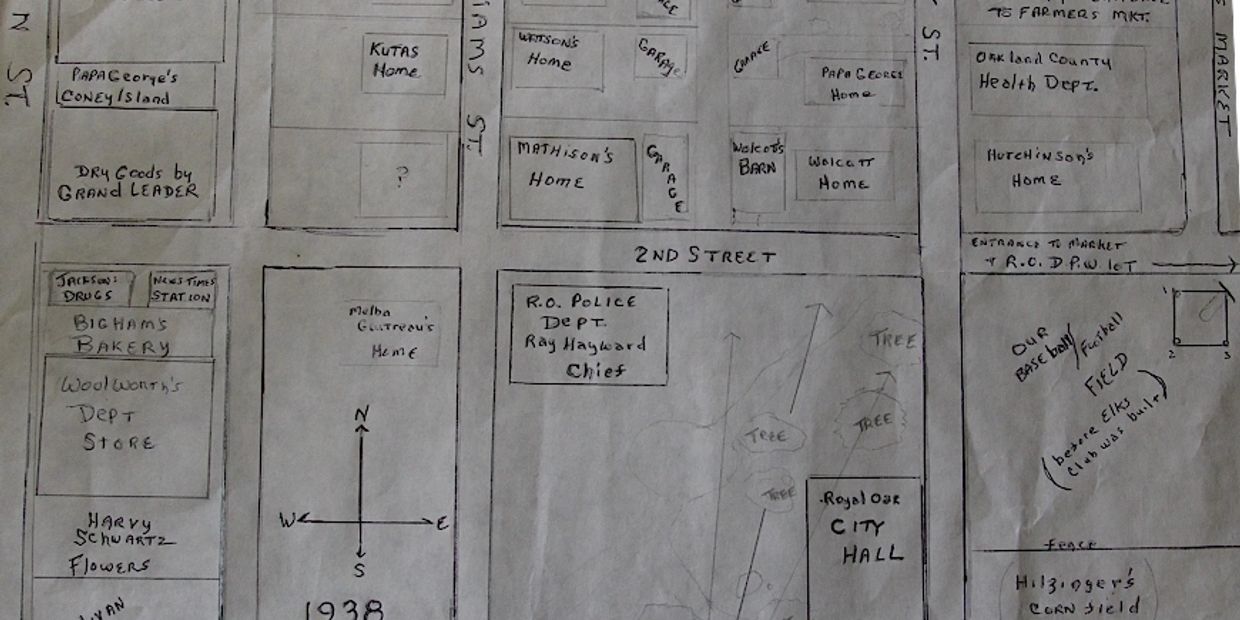 N ST.
PAPAGeorge's
CONEY Island
DRY Goods by
GRAND LEADER
KUTAS
Home
?
AMS ST.
WATSON'S
Home
GARAGE
GARAGE
PAPA GEORGE
Home
MATHISON'S
HOME
GARAGE
Wolcott's
BARN
WOLCOTT
HOME
ST.
TO FARMERS MKT.
OAKland County
Health Dept.
HUTCHINSON'S
HOME
MARKET
2ND STREET
ENTRANCE TO MARKET
+ R.O. D.P.W. LOT
JACKSON'S
DRUGS
NEWS TIMES
STATION
BIGHAM'S
BAKERY
WoolWorth's
DEPT
STORE
HARVY
SCHWARTZ
Flowers
Melba
Home
N
W
E
S
1938
R.O. POLICE
DEPT.
Ray Hayward
Chief
TREE
TREE
TREE
TREE
Royal Oak
CITY
HALL
OUR
BASEball/Football
FIELD
(before Elks
Club was built)
1
2
3
Fence
Hilzinger's
CORN field